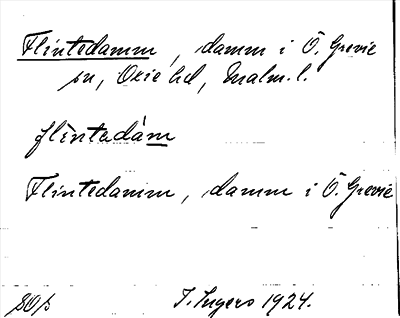 Flintedamm, damm i Ö. Grevie
sn, Oxie hd, Malm. l.
flintadàm
Flintedamm, damm i Ö. Grevie
I. Ingers 1924.